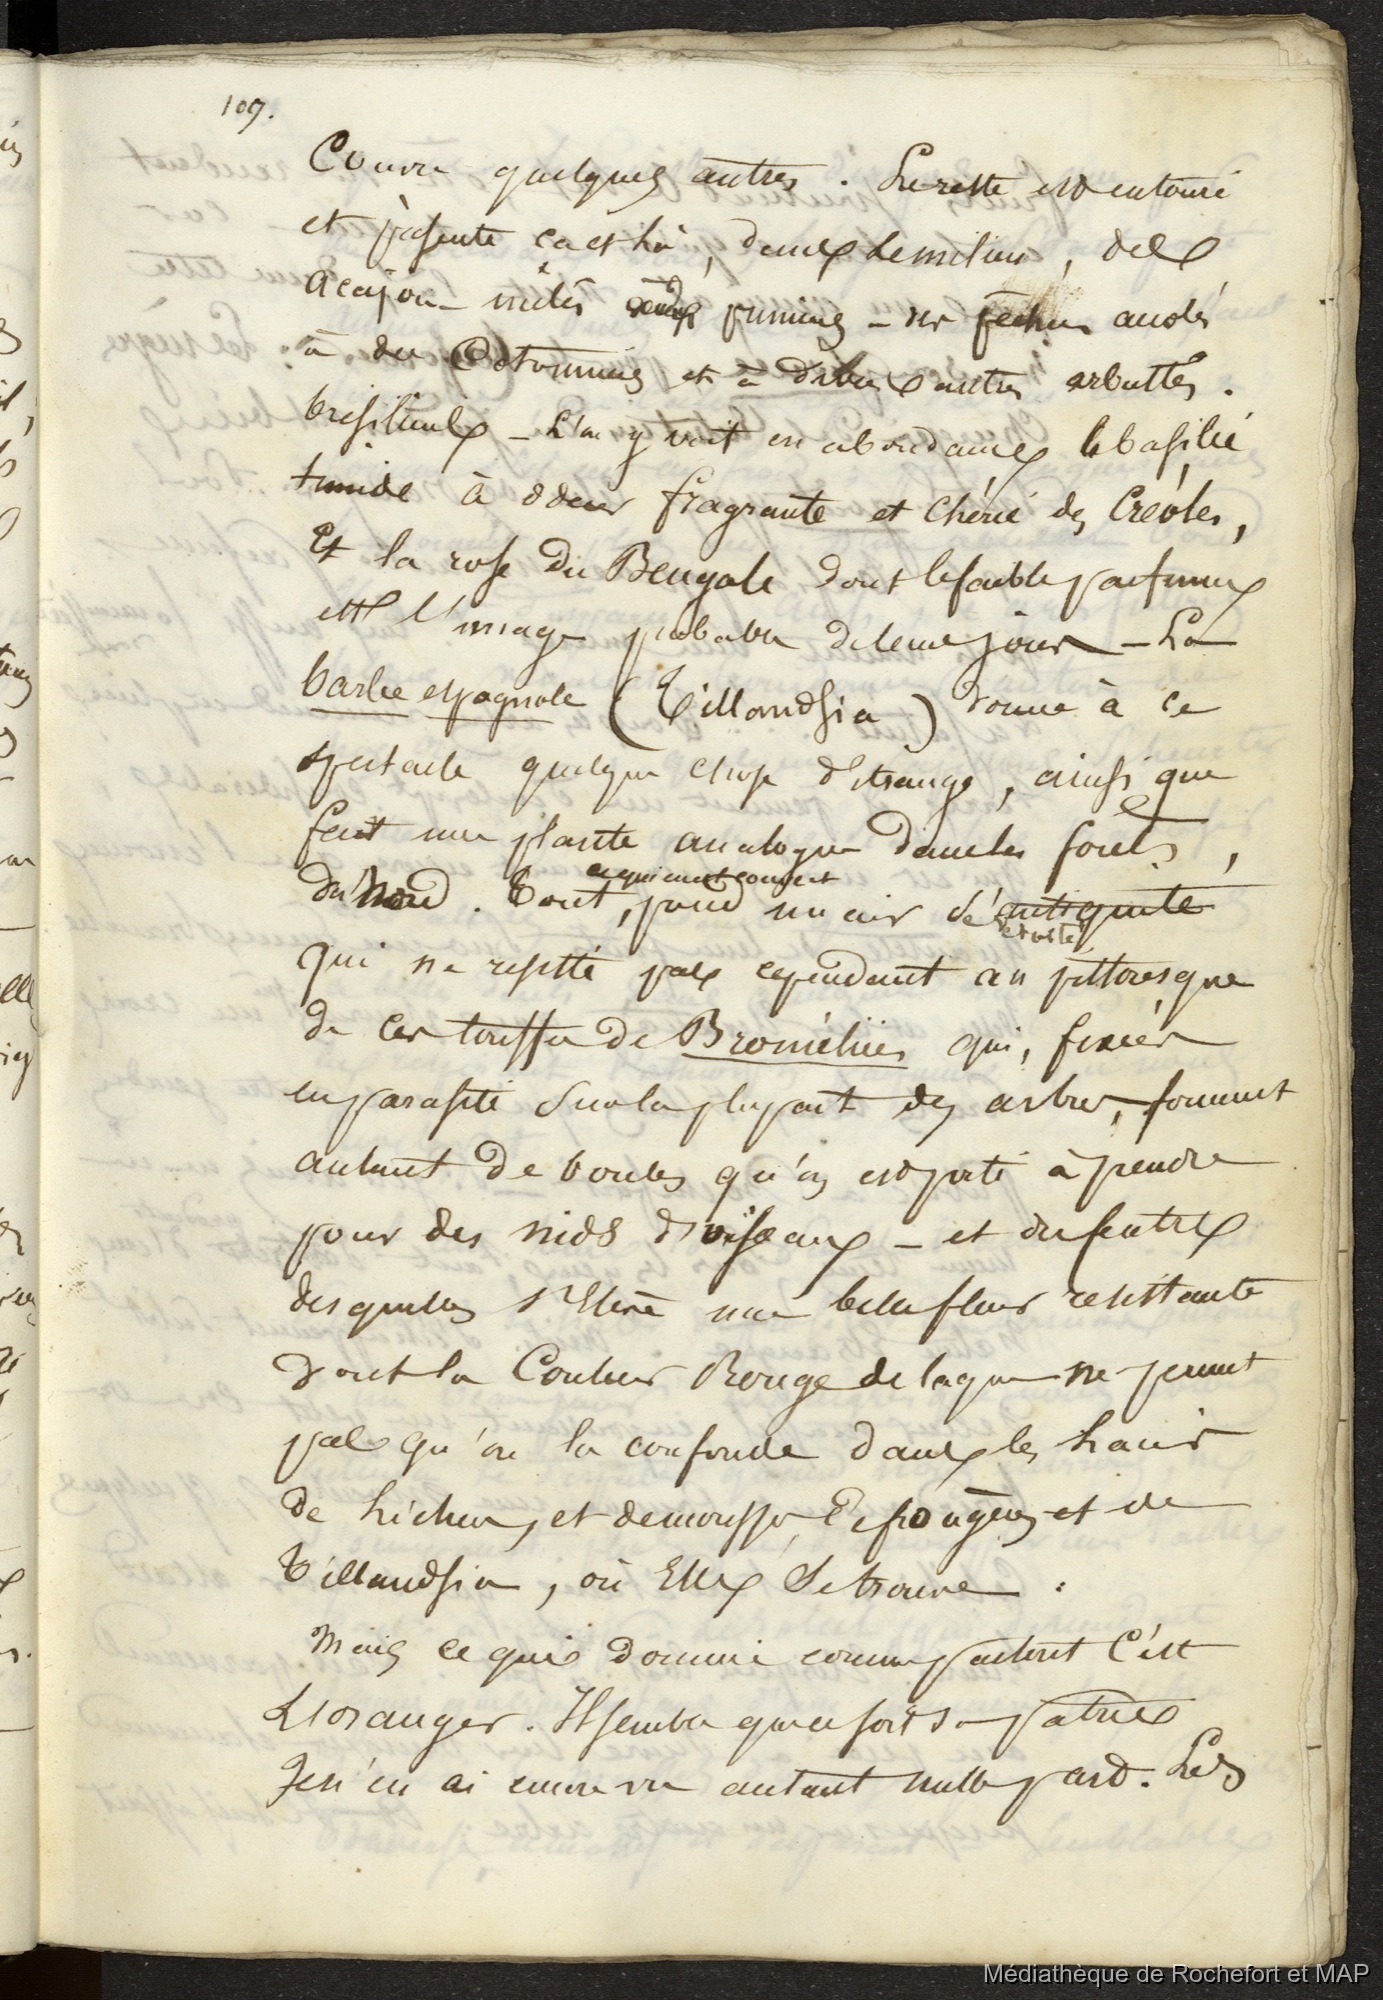 109.
Couvre quelques autres. Le reste est entouré
et présente çà et là, dans le milieu, des
acajou - mêlés aux pruniers - aux pêchers
à des Cotonniers et à autres arbustes.
bresiliens - L'on y voit en abondance le basilic
timide à odeur fragrante et chérie des Créoles,
Et la rose du Bengale dont le faible parfum
est l'image probable de leur jour - La
barbe espagnole (Tillandsia) donne à ce
spectacle quelque chose d'étrange, ainsi que
fait une plante analogue dans les forêts,
du Nord. Tout, ce qui en est couvert prend un air d'antiquité
vétusté
qui ne résiste pas cependant au pittoresque
de ces touffes de Broméliées qui, fixées
en parasite sur la plupart des arbres, forment
autant de boules qu'on est porté à prendre
pour des nids d'oiseaux - et du centre
desquelles s'élève une belle fleur résistante
dont la Couleur Rouge de laque ne permet
pas qu'on la confonde dans les
de lichens, et de mousse, de fougères et de
Tillandsia, où Elle se trouve.
Mais ce qui domine comme partout c'est
L'oranger. Il semble que ce soit sa patrie
Je n'en ai encore vu autant nulle part. Les
Médiathèque de Rochefort et MAP